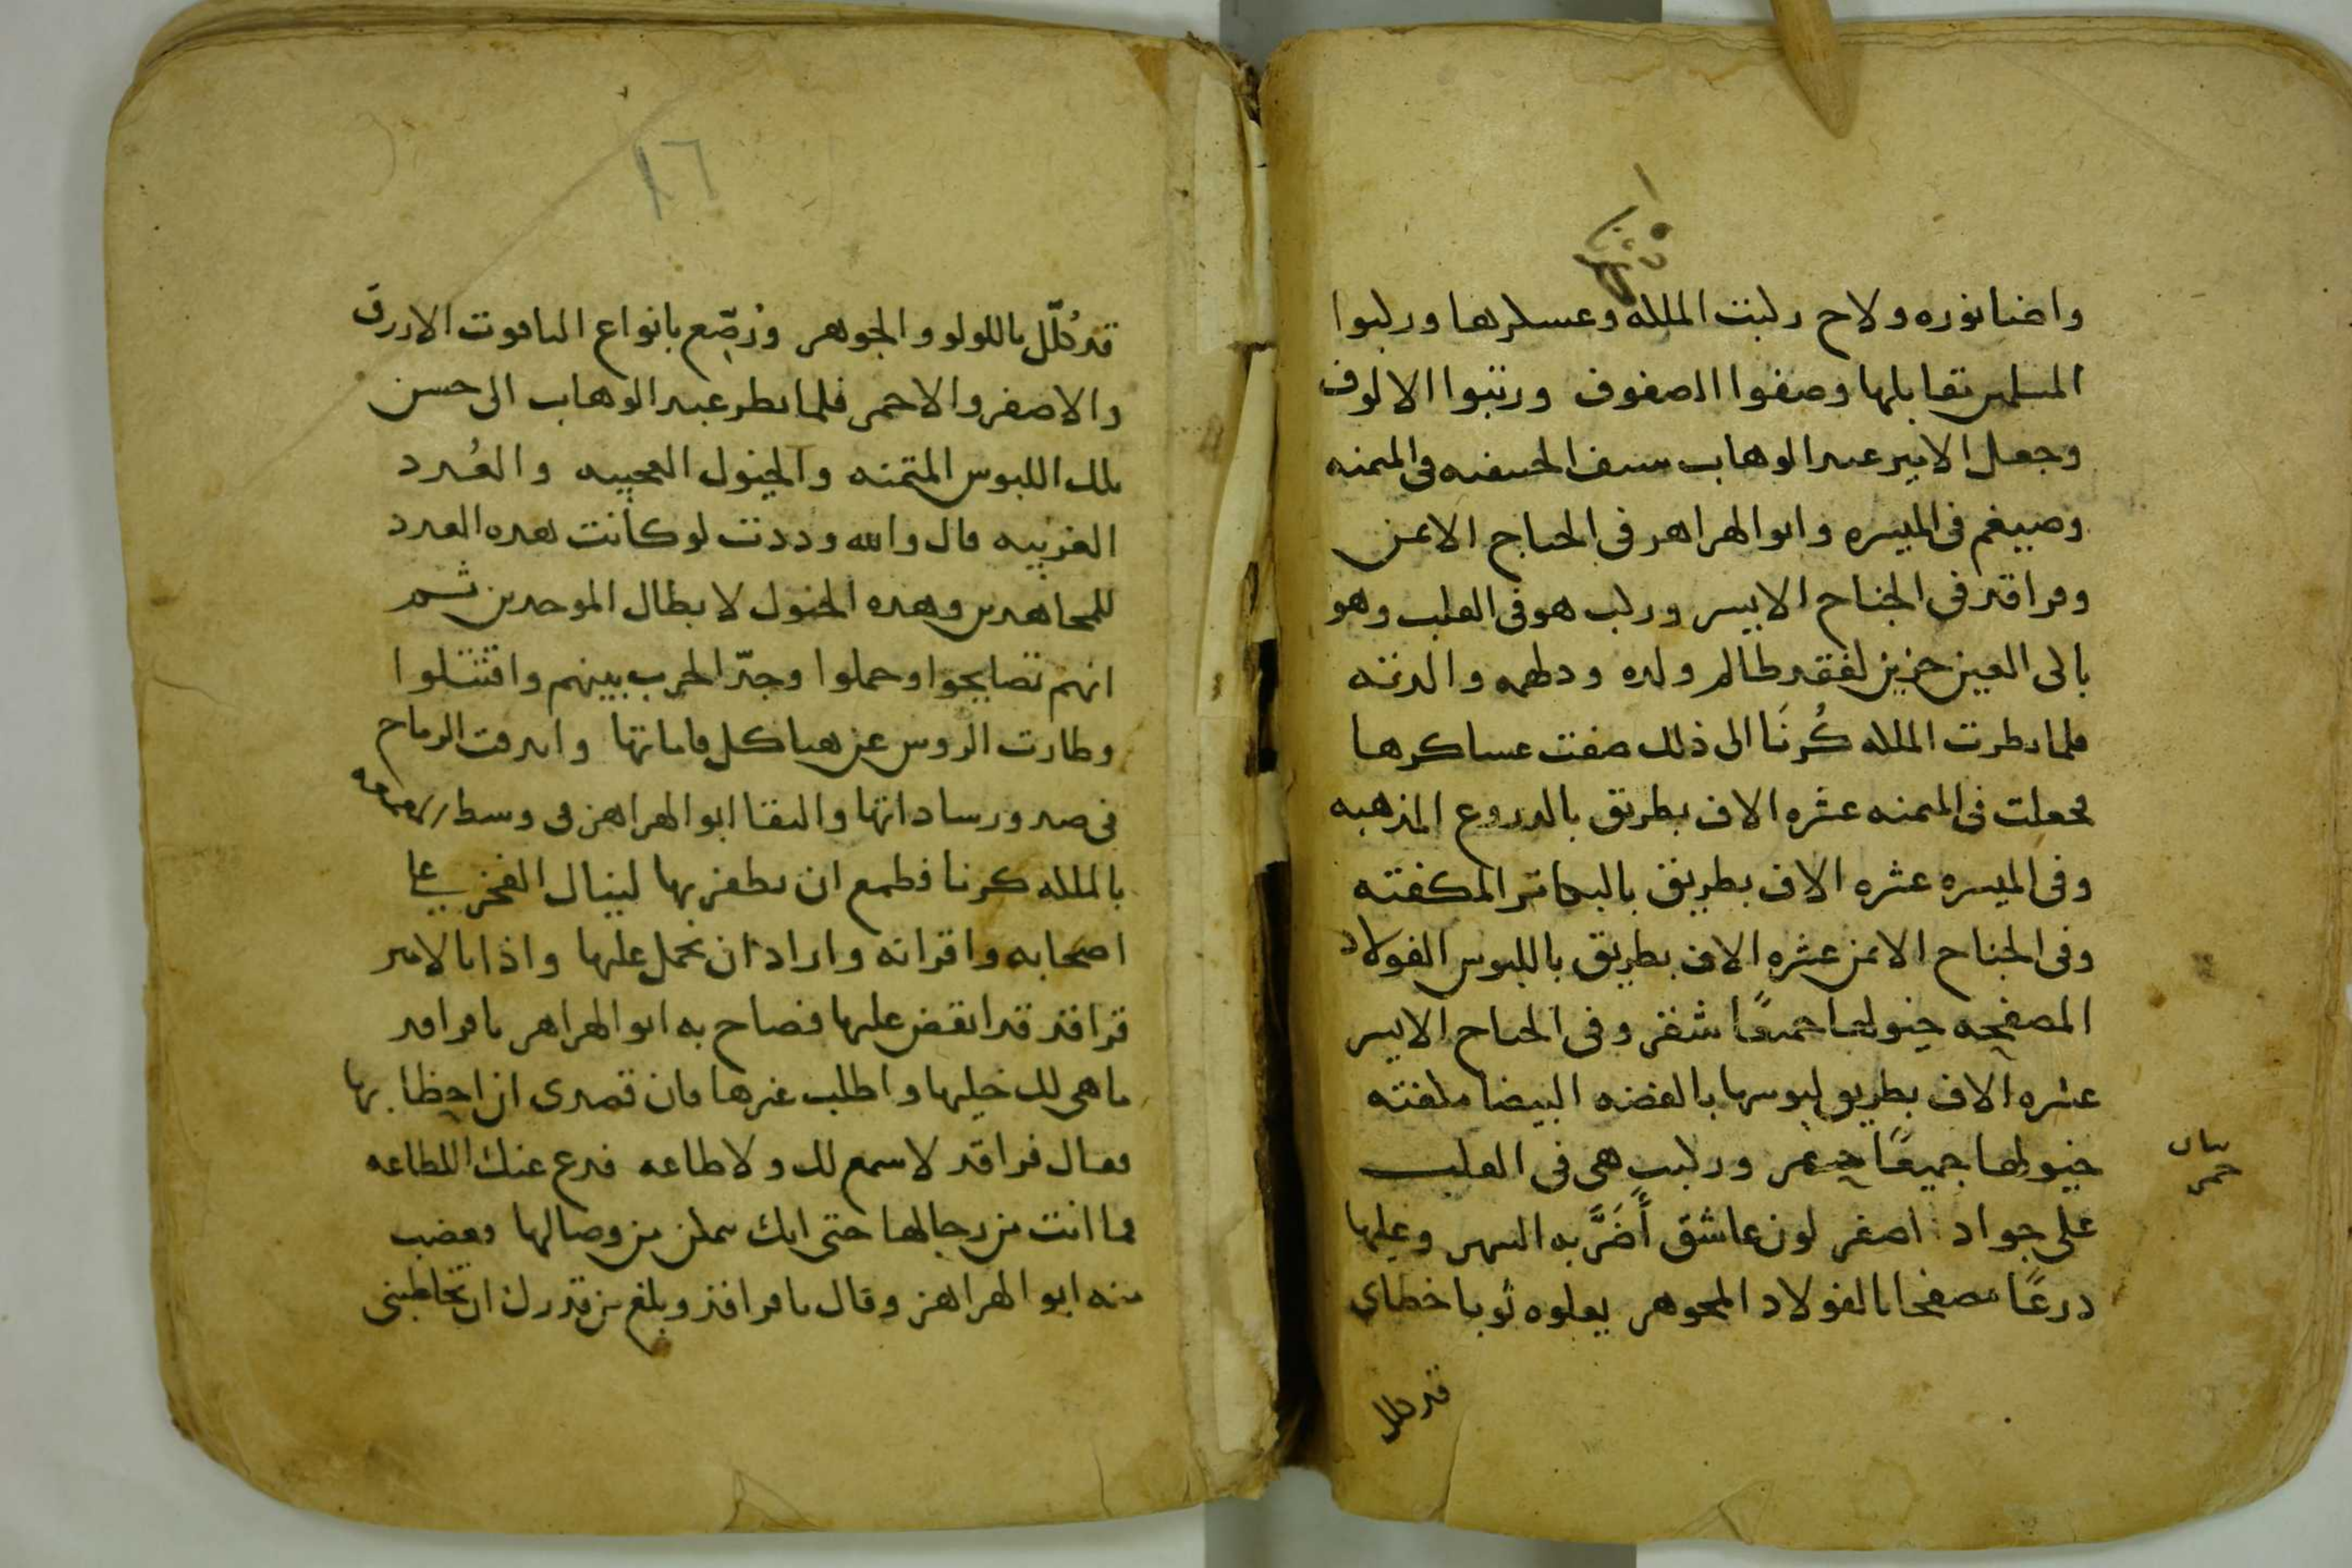 كرنا
واضا نوره ولاح ركبت الملكه وعسكرها وركبوا
المسلمين تقابلها وصفوا الصفوف ورتبوا الالوف
وجعل الامير عبد الوهاب سيف الحنيفيه في الميمنه
وصيغم في الميسره وابو الهزاهز في الجناح الايمن
وفراقد في الجناح الايسر وركب هو في القلب وهو
باكى العين حزين لفقد ظالم ولده ودلهمه والدته
فلما نظرت الملكه كُرنَا الى ذلك صفت عساكرها
فجعلت في الميمنه عشره الاف بطريق بالدروع المذهبه
وفي الميسره عشره الاف بطريق بالبكاتر المكفته
وفي الجناح الايمن عشره الاف بطريق باللبوس الفولاد
المصفحه خيولها جميعًا شقر وفي الجناح الايسر
عشره الاف بطريق لبوسها بالفضه البيضا مكفته
خيولها جميعًا حمر وركبت هي في القلب
على جواد اصفر لون عاشق أضَرَّ به السهر وعليها
درعًا مصفحا بالفولاد المجوهر يعلوه ثوبا خطاى
بيان
حمر
قد كلل
١٦
قد كُلّل باللولو والجوهر ورُصّع بانواع الياقوت الازرق
والاصفر والاحمر فلما نظر عبد الوهاب الى حسن
تلك اللبوس المتمنه والخيول العجيبه والعُدد
الغريبيه قال والله وددت لو كانت هده العدد
للمجاهدين وهده الخيول لابطال الموحدين ثم
انهم تصايحوا وحملوا وجدّ الحرب بينهم واقتتلوا
وطارت الروس عن هياكل قاماتها واندقت الرماح
في صدور ساداتها والتقا ابو الهزاهز في وسط المعمعه
بالملكه كرنا فطمع ان يظفر بها لينال الفخر على
اصحابه واقرانه واراد ان يحمل عليها واذا بالامير
فراقد قد انقض عليها فصاح به ابو الهزاهز يا فراقد
ما هي لك خليها واطلب غيرها فان قصدى ان احظا بها
فقال فراقد لا سمع لك ولا طاعه فدع عنك الطاعه
فما انت من رجالها حتى انك تمكن من وصالها فغضب
منه ابو الهزاهز وقال يا فراقد وبلغ من قدرك ان تخاطبني